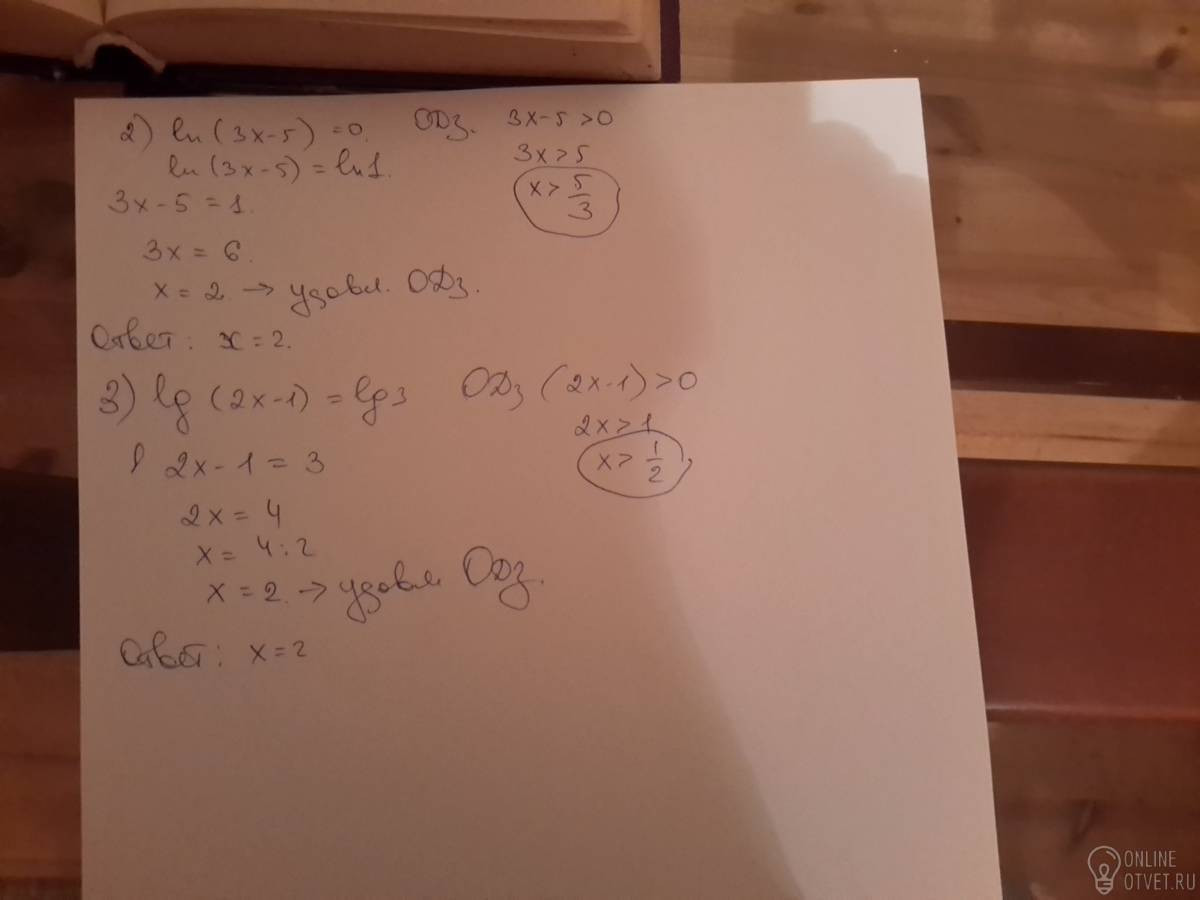 2) ln (3x-5) = 0. ОДЗ. 3x-5 >0
ln (3x-5) = ln1. 3x>5
3x-5 = 1. x> 5/3
3x = 6.
x = 2. → удовл. ОДЗ.
Ответ: x = 2.
3) lg (2x-1) = lg3 ОДЗ (2x-1) >0
2x>1
2x-1 = 3 x> 1/2
2x = 4
x = 4:2
x = 2. → удовл ОДЗ.
Ответ: x = 2
ONLINE
OTVET.RU